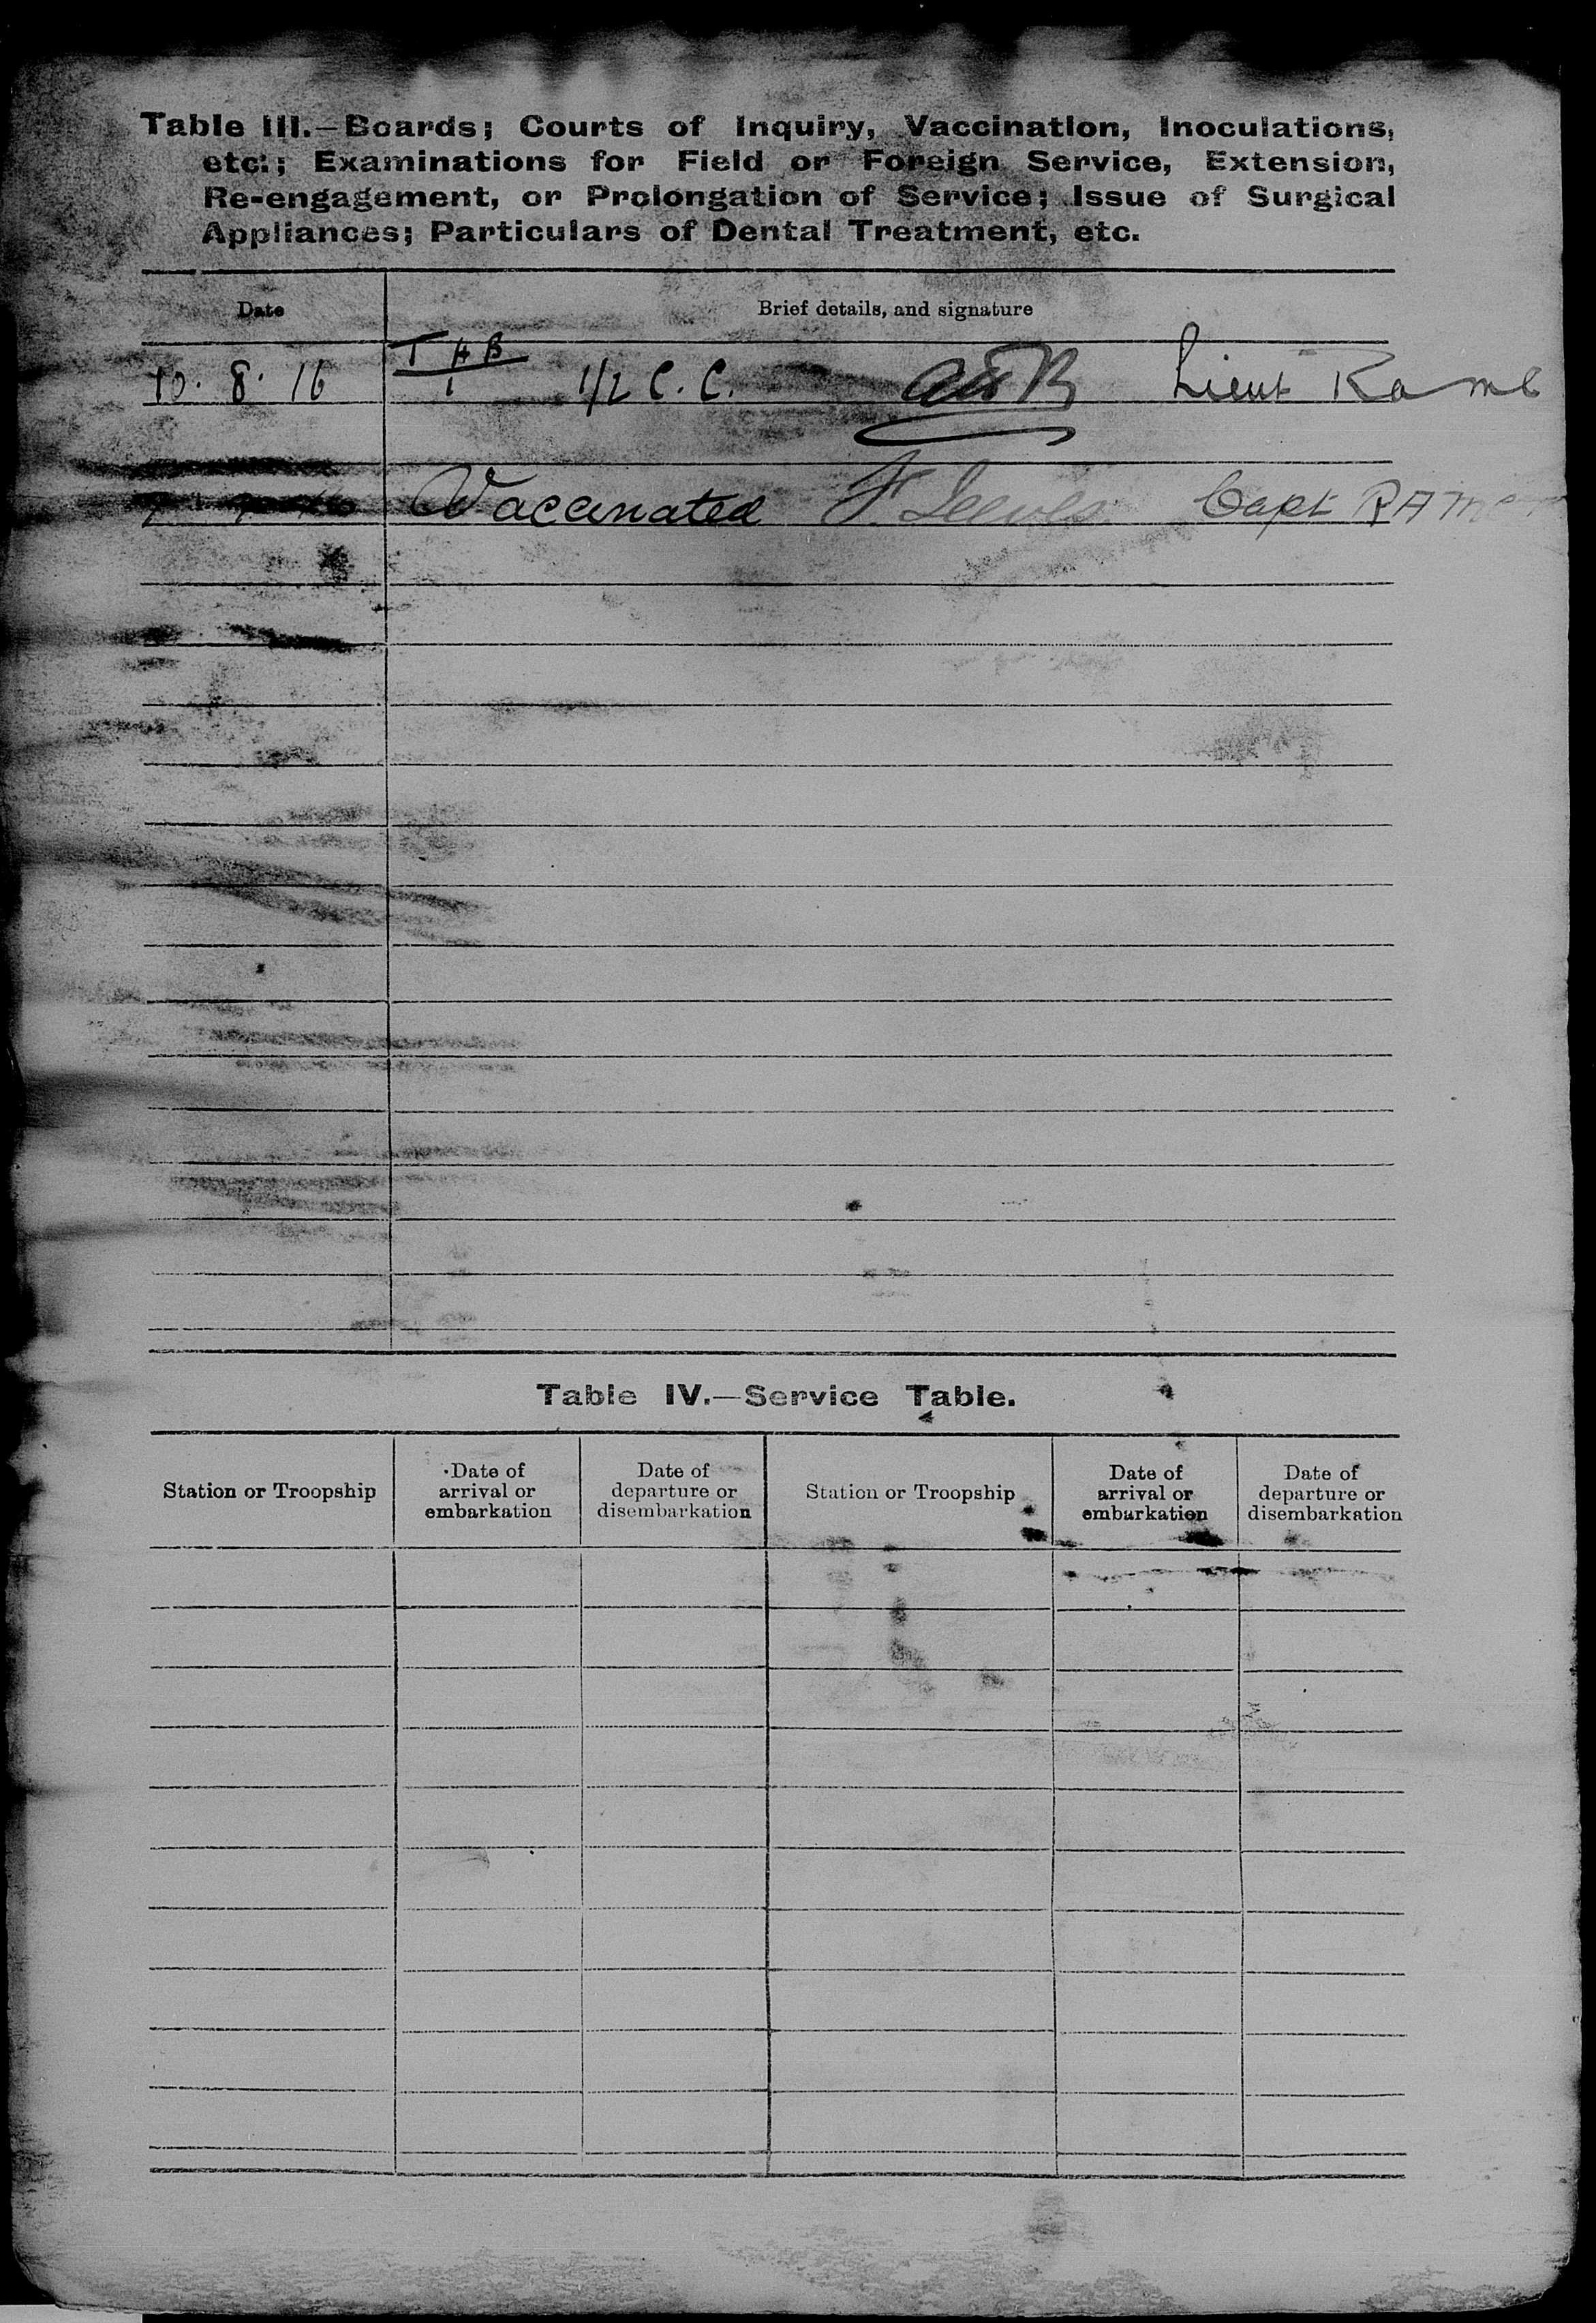 Table III.—Boards; Courts of Inquiry, Vaccination, Inoculations,
etc.; Examinations for Field or Foreign Service, Extension,
Re-engagement, or Prolongation of Service; Issue of Surgical
Appliances; Particulars of Dental Treatment, etc.
Date Brief details, and signature
10. 8. 16 1/2 C. C. Lieut Ramc
Vaccinated Capt RAMC
Table IV.—Service Table.
Station or Troopship Date of arrival or embarkation Date of departure or disembarkation Station or Troopship Date of arrival or embarkation Date of departure or disembarkation